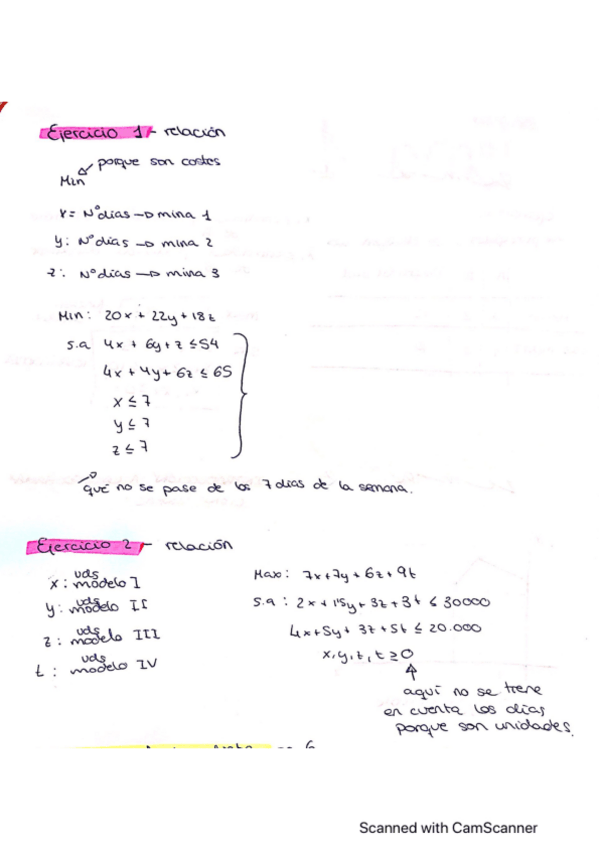 Ejercicio 1 - relación
porque son costes
Min
x = Nº días → mina 1
y: Nº días → mina 2
z: Nº días → mina 3
Min: 20x + 22y + 18z
s.a 4x + 6y + z ≤ 54
4x + 4y + 6z ≤ 65
x ≤ 7
y ≤ 7
z ≤ 7
que no se pase de los 7 días de la semana.
Ejercicio 2 - relación
x: uds modelo I
y: uds modelo II
z: uds modelo III
t: uds modelo IV
Max: 7x + 7y + 6z + 9t
s.a: 2x + 15y + 3z + 3t ≤ 30000
4x + 5y + 3z + 5t ≤ 20.000
x, y, z, t ≥ 0
aquí no se tiene
en cuenta los días
porque son unidades.
Scanned with CamScanner